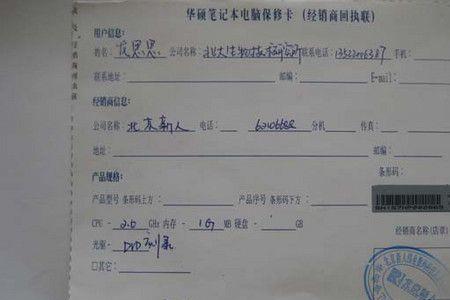 华硕笔记本电脑保修卡（经销商回执联）
用户信息:
姓名: 思思 公司名称: 北大生物技术研究所 联系电话: 手机:
联系地址: 邮编: E-mail:
经销商信息:
公司名称: 北京新人 电话: 分机 传真:
地址: 邮编:
产品规格: 条形码:
产品型号 条形码上方: 产品序号 条形码下方:
CPU - 2.0 GHz 内存 - 1G MB 硬盘 - GB
光驱: DVD刻录 经销商名称(店章)
□其它: